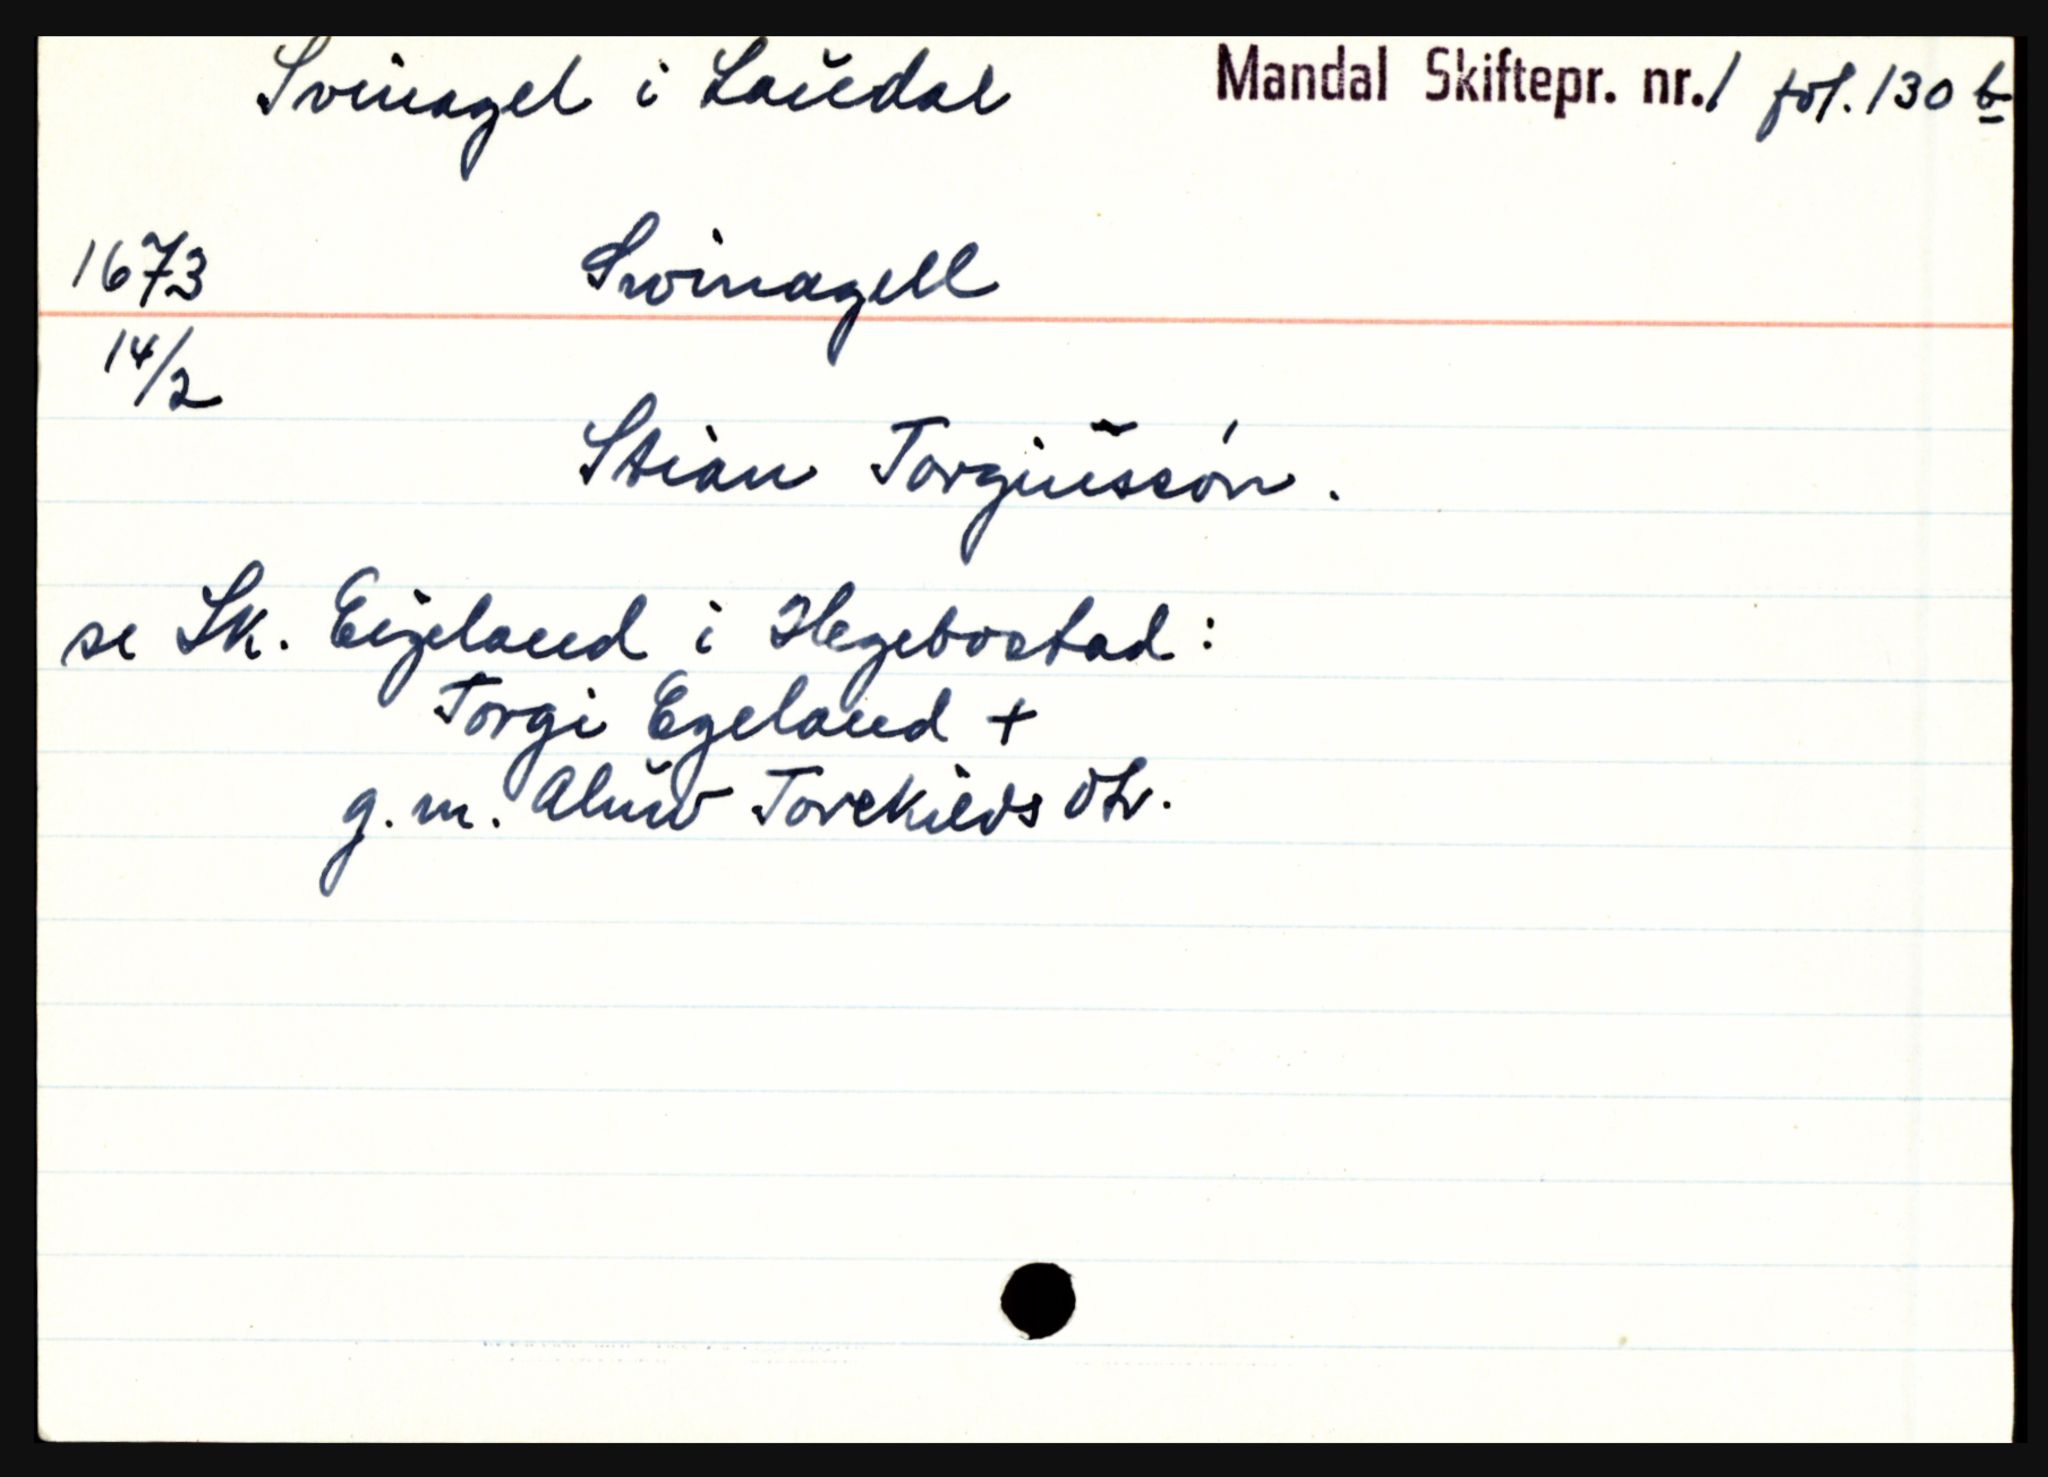 Svinagel i Laudal Mandal Skiftepr. nr. 1 fol. 130 b
1673 Swinagell
14/2
Stian Torgiussón.
se Sk. Eigeland i Hegebostad:
Torgi Egeland +
g. m. Aluw Torckilds dtr.